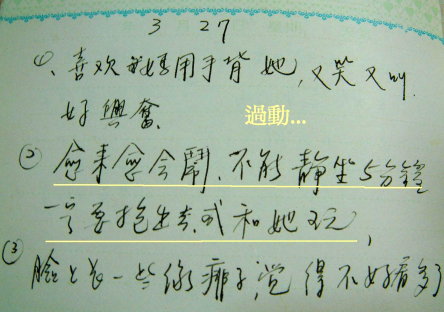 3 27
①、喜欢我媽用手背她,又笑又叫.
好興奮.
過動...
② 愈來愈会鬧.不能靜坐5分鐘
一定要抱出去.或和她玩,
③
臉上长一些像痱子,覚得不好看多了